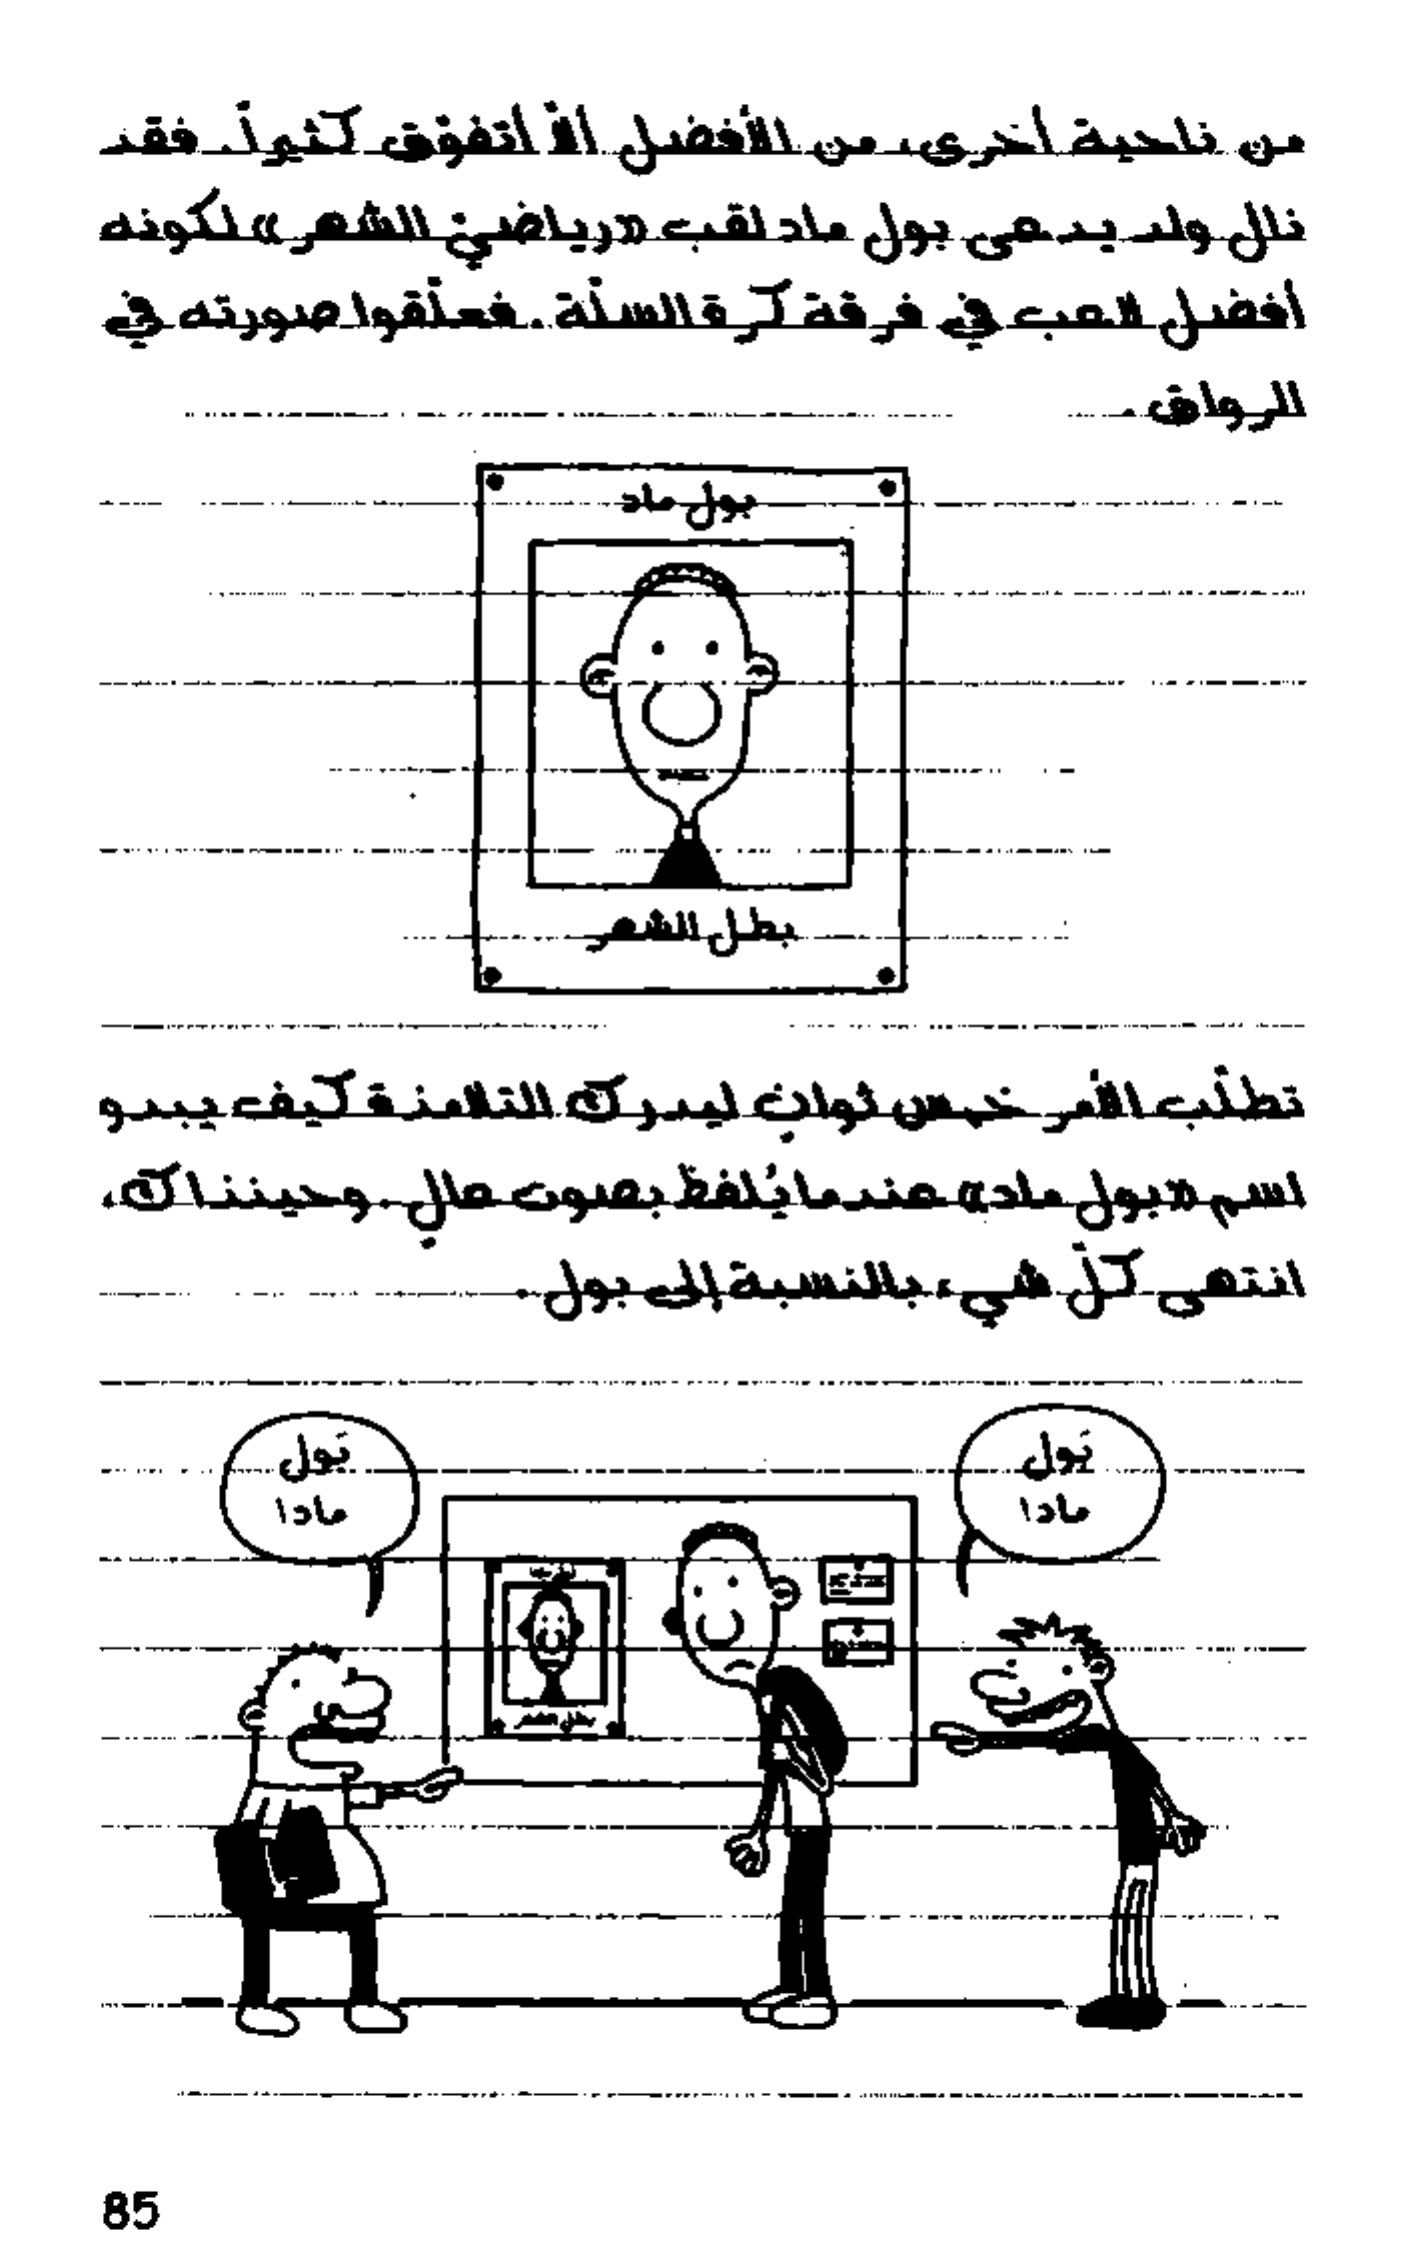 من ناحية أخرى، من الأفضل ألاّ أتفوّق كثيراً. فقد
نال ولد يدعى بول ماد لقب «رياضيّ الشهر» لكونه
أفضل لاعب في فرقة كرة السلّة. فعلّقوا صورته في
الرواق.
بول ماد
بطل الشهر
تطلّب الأمر خمس ثوانٍ ليدرك التلامذة كيف يبدو
اسم «بول ماد» عندما يُلفظ بصوت عالٍ. وحينذاك،
انتهى كلّ شيء بالنسبة إلى بول.
بَول
مادا
بَول
مادا
بطل الشهر
85